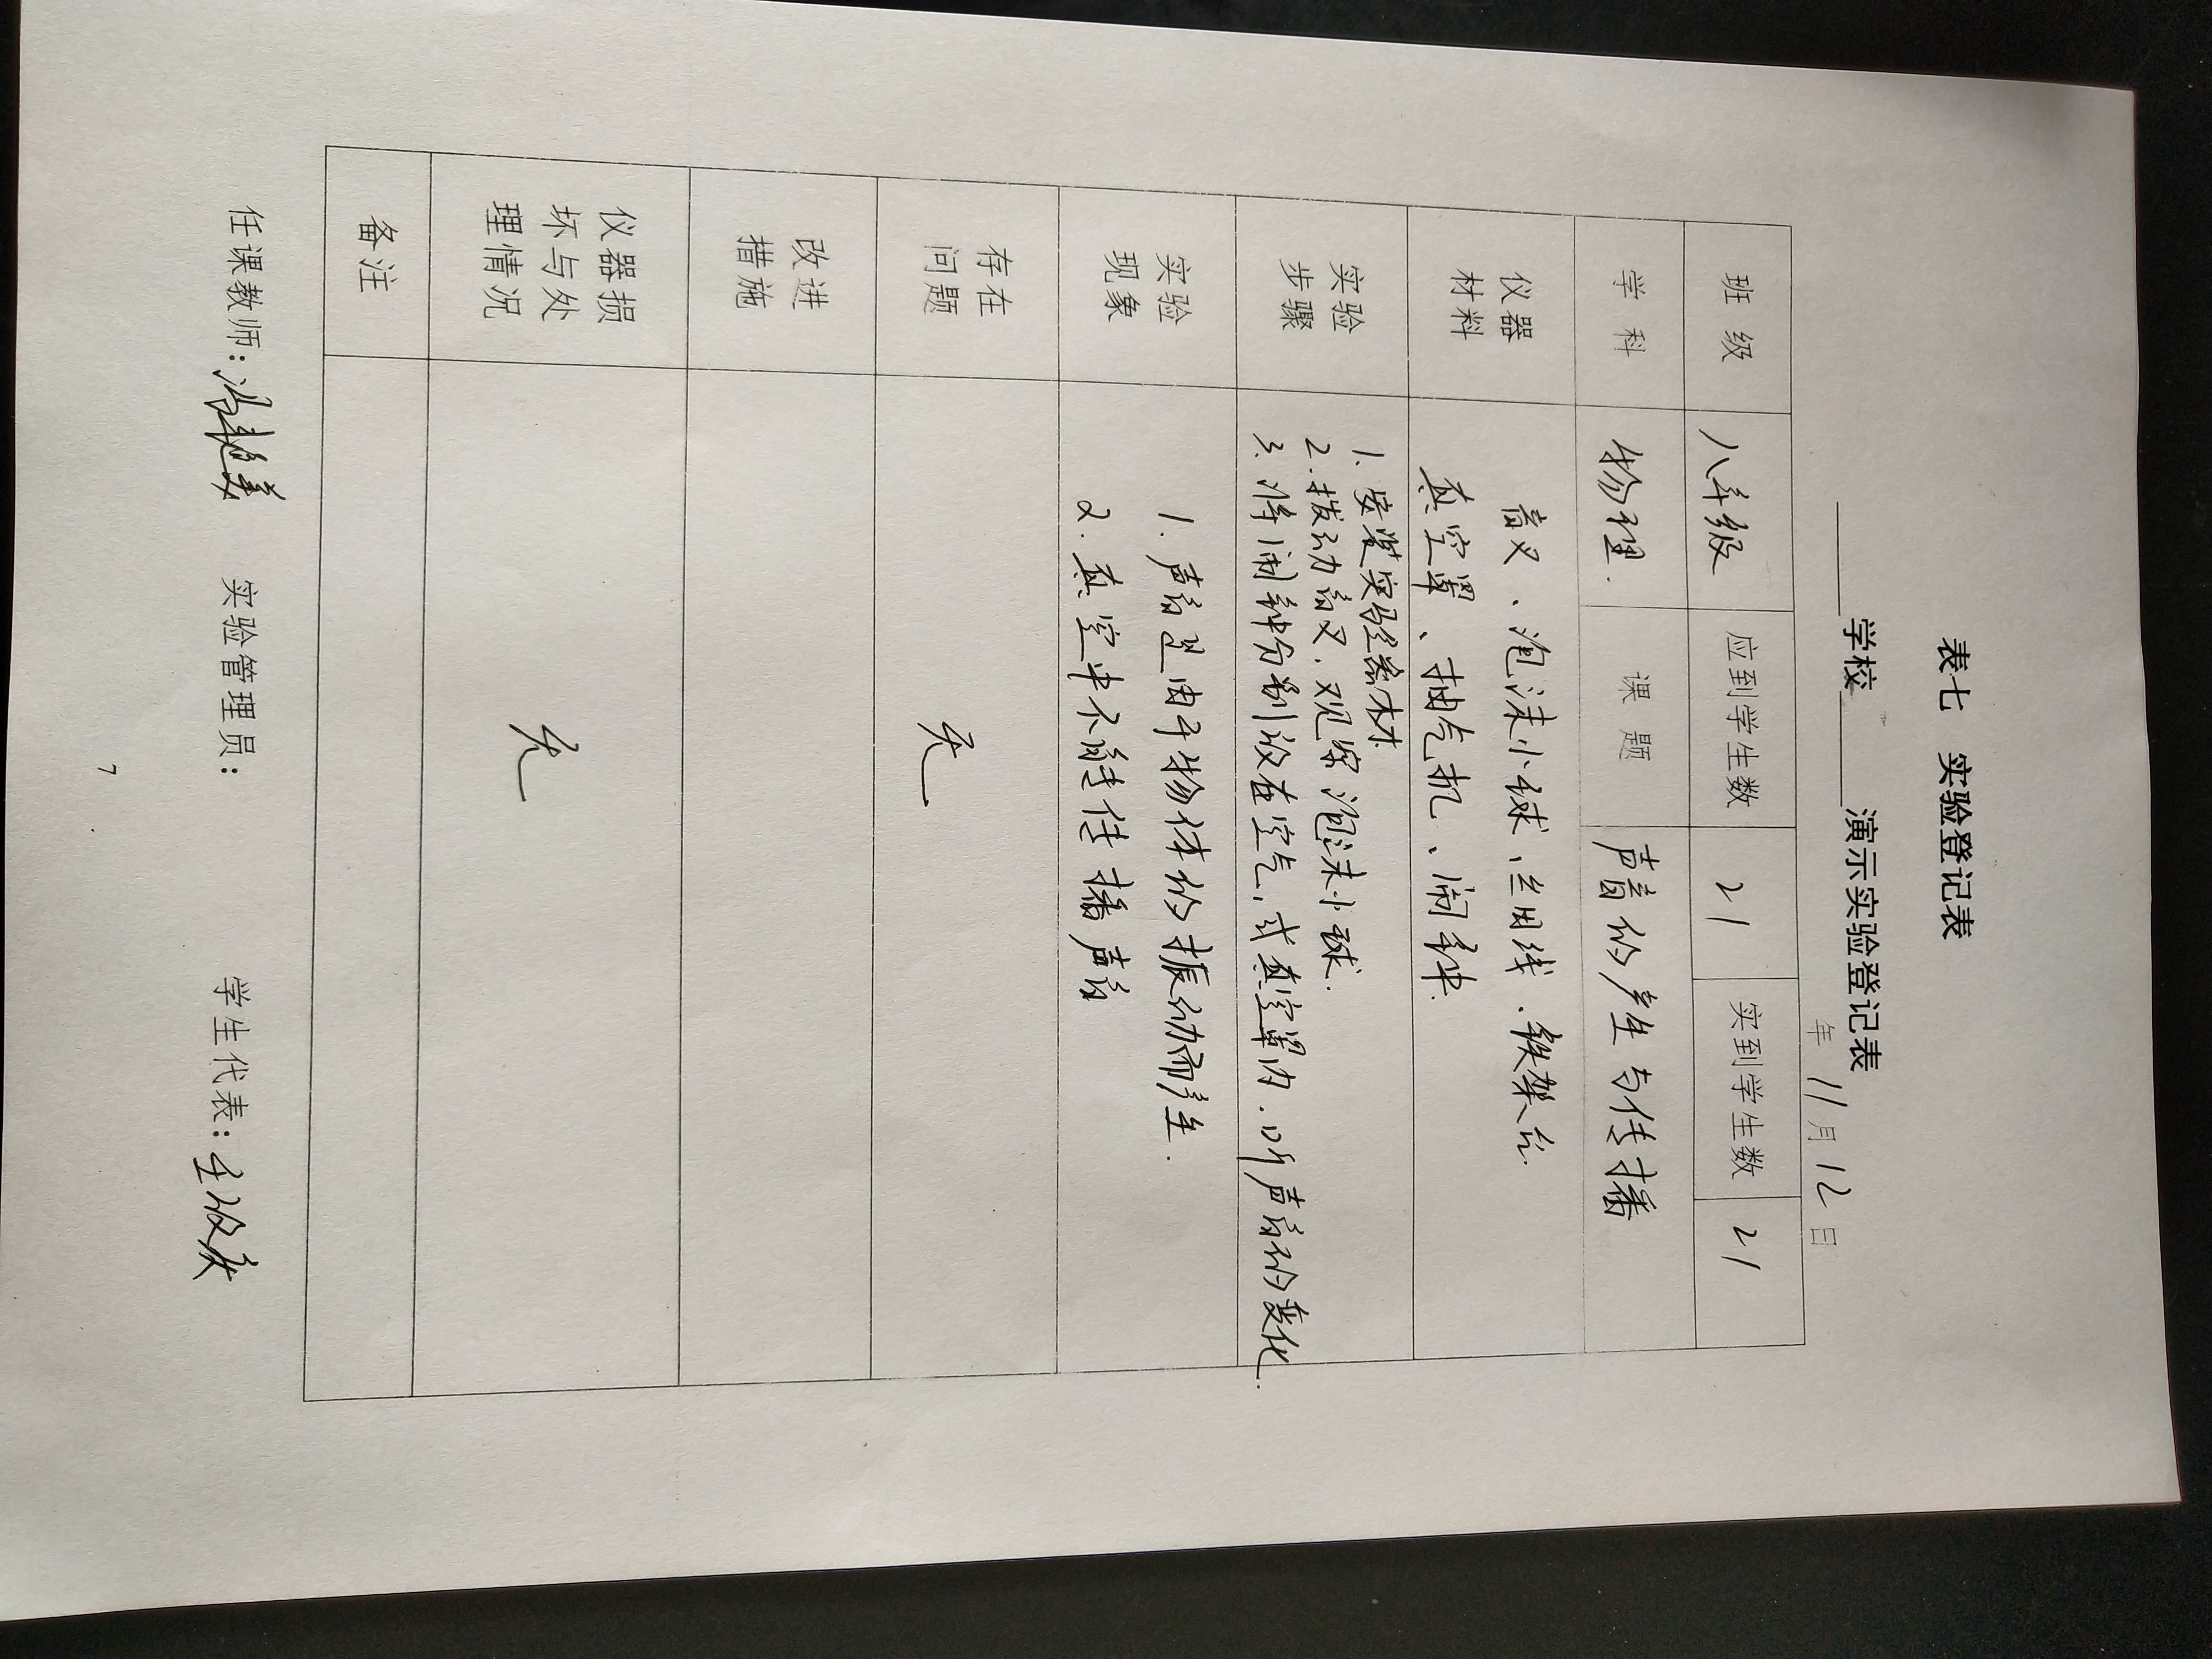 表七 实验登记表
学校 演示实验登记表
年 11月12日
班级 八年级 应到学生数 21 实到学生数 21
学科 物理. 课题 声音的产生与传播
仪器材料
音叉、泡沫小球、丝用线、铁架台.
真空罩、抽气机、闹钟.
实验步骤
1. 安装实验器材
2. 拨动音叉，观察泡沫小球.
3. 将闹钟分别放在空气，或真空罩内，听声音的变化.
实验现象
1. 声音是由于物体的振动而产生.
2. 真空中不能传播声音
存在问题
无
改进措施
仪器损坏与处理情况
无
备注
任课教师: 实验管理员: 学生代表:
7